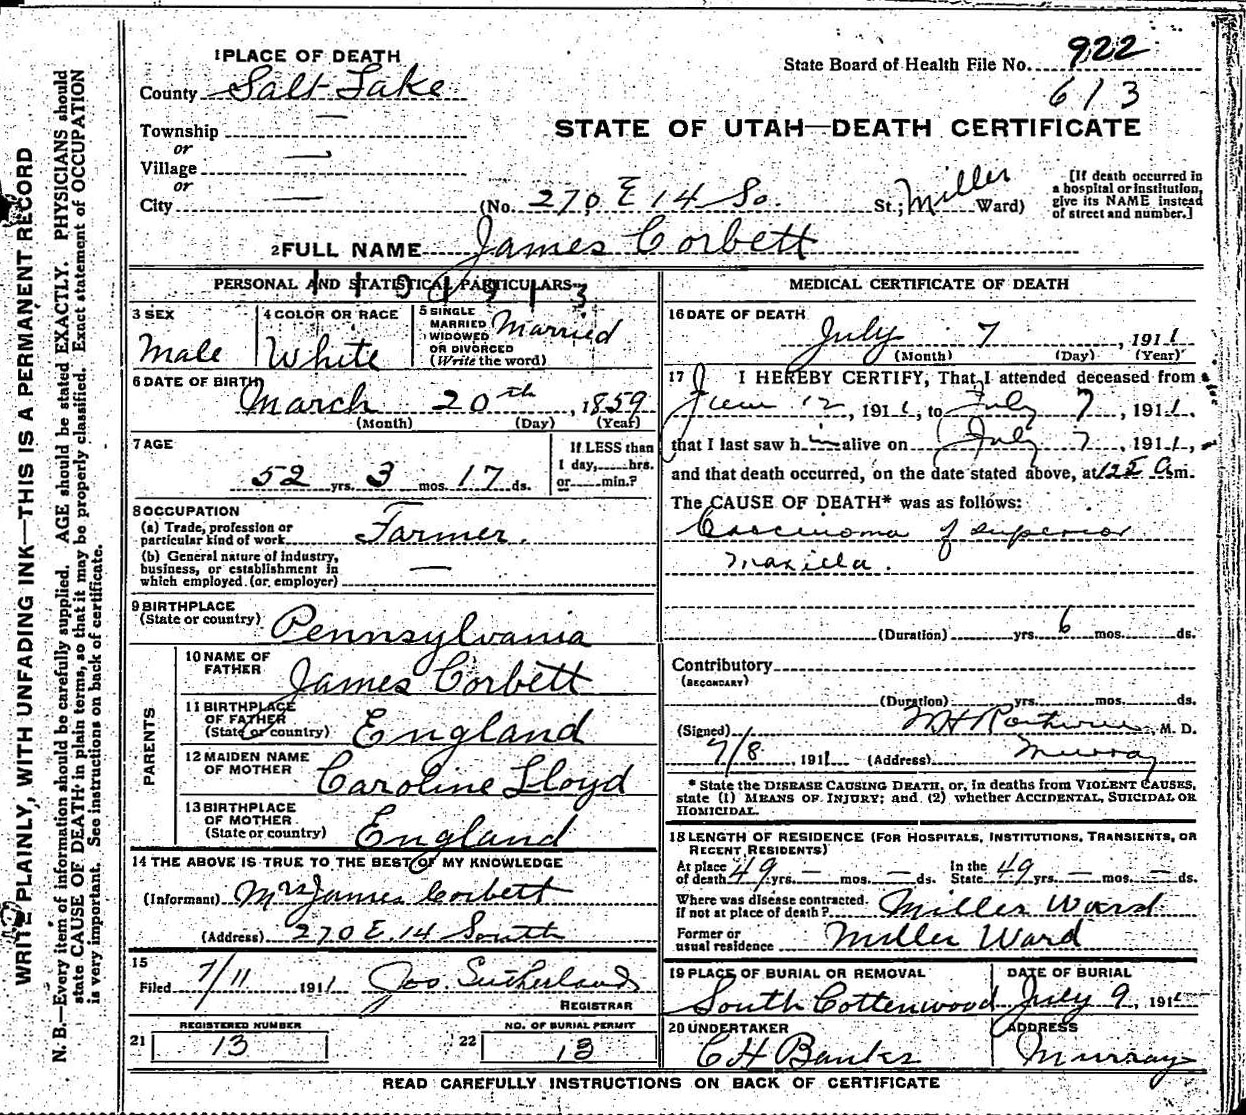 1 PLACE OF DEATH
County Salt Lake
Township —
or
Village —
or
City —
State Board of Health File No. 922
613
STATE OF UTAH—DEATH CERTIFICATE
(No. 270 E 14 So. St.; Miller Ward)
[If death occurred in
a hospital or institution,
give its NAME instead
of street and number.]
2 FULL NAME James Corbett
PERSONAL AND STATISTICAL PARTICULARS
3 SEX
Male
4 COLOR OR RACE
White
5 SINGLE
MARRIED
WIDOWED
OR DIVORCED
(Write the word)
Married
6 DATE OF BIRTH
March 20th, 1859
(Month) (Day) (Year)
7 AGE
52 yrs. 3 mos. 17 ds.
If LESS than
1 day, hrs.
or min.?
8 OCCUPATION
(a) Trade, profession or
particular kind of work Farmer.
(b) General nature of industry,
business, or establishment in
which employed (or employer) —
9 BIRTHPLACE
(State or country) Pennsylvania
PARENTS
10 NAME OF
FATHER James Corbett
11 BIRTHPLACE
OF FATHER
(State or country) England
12 MAIDEN NAME
OF MOTHER Caroline Lloyd
13 BIRTHPLACE
OF MOTHER
(State or country) England
14 THE ABOVE IS TRUE TO THE BEST OF MY KNOWLEDGE
(Informant) Mrs James Corbett
(Address) 270 E. 14 South
15
Filed 7/11 1911 Jos. Sutherland
REGISTRAR
REGISTERED NUMBER
21 13
NO. OF BURIAL PERMIT
22 13
MEDICAL CERTIFICATE OF DEATH
16 DATE OF DEATH
July 7, 1911
(Month) (Day) (Year)
17 I HEREBY CERTIFY, That I attended deceased from
June 12, 1911, to July 7, 1911,
that I last saw h im alive on July 7, 1911,
and that death occurred, on the date stated above, at m.
The CAUSE OF DEATH* was as follows:
Carcinoma of superior
maxilla.
(Duration) yrs. 6 mos. ds.
Contributory
(SECONDARY)
(Duration) yrs. mos. ds.
(Signed) M. D.
7/8, 1911 (Address) Murray
* State the DISEASE CAUSING DEATH, or, in deaths from VIOLENT CAUSES,
state (1) MEANS OF INJURY; and (2) whether ACCIDENTAL, SUICIDAL OR
HOMICIDAL.
18 LENGTH OF RESIDENCE (FOR HOSPITALS, INSTITUTIONS, TRANSIENTS, OR
RECENT RESIDENTS)
At place
of death 49 yrs. — mos. — ds.
In the
State 49 yrs. — mos. — ds.
Where was disease contracted.
if not at place of death? Miller Ward
Former or
usual residence Miller Ward
19 PLACE OF BURIAL OR REMOVAL
South Cottenwood
DATE OF BURIAL
July 9, 1911
20 UNDERTAKER
C H Banks
ADDRESS
Murray
READ CAREFULLY INSTRUCTIONS ON BACK OF CERTIFICATE
WRITE PLAINLY, WITH UNFADING INK—THIS IS A PERMANENT RECORD
N. B.—Every item of information should be carefully supplied. AGE should be stated EXACTLY. PHYSICIANS should
state CAUSE OF DEATH in plain terms, so that it may be properly classified. Exact statement of OCCUPATION
is very important. See instructions on back of certificate.